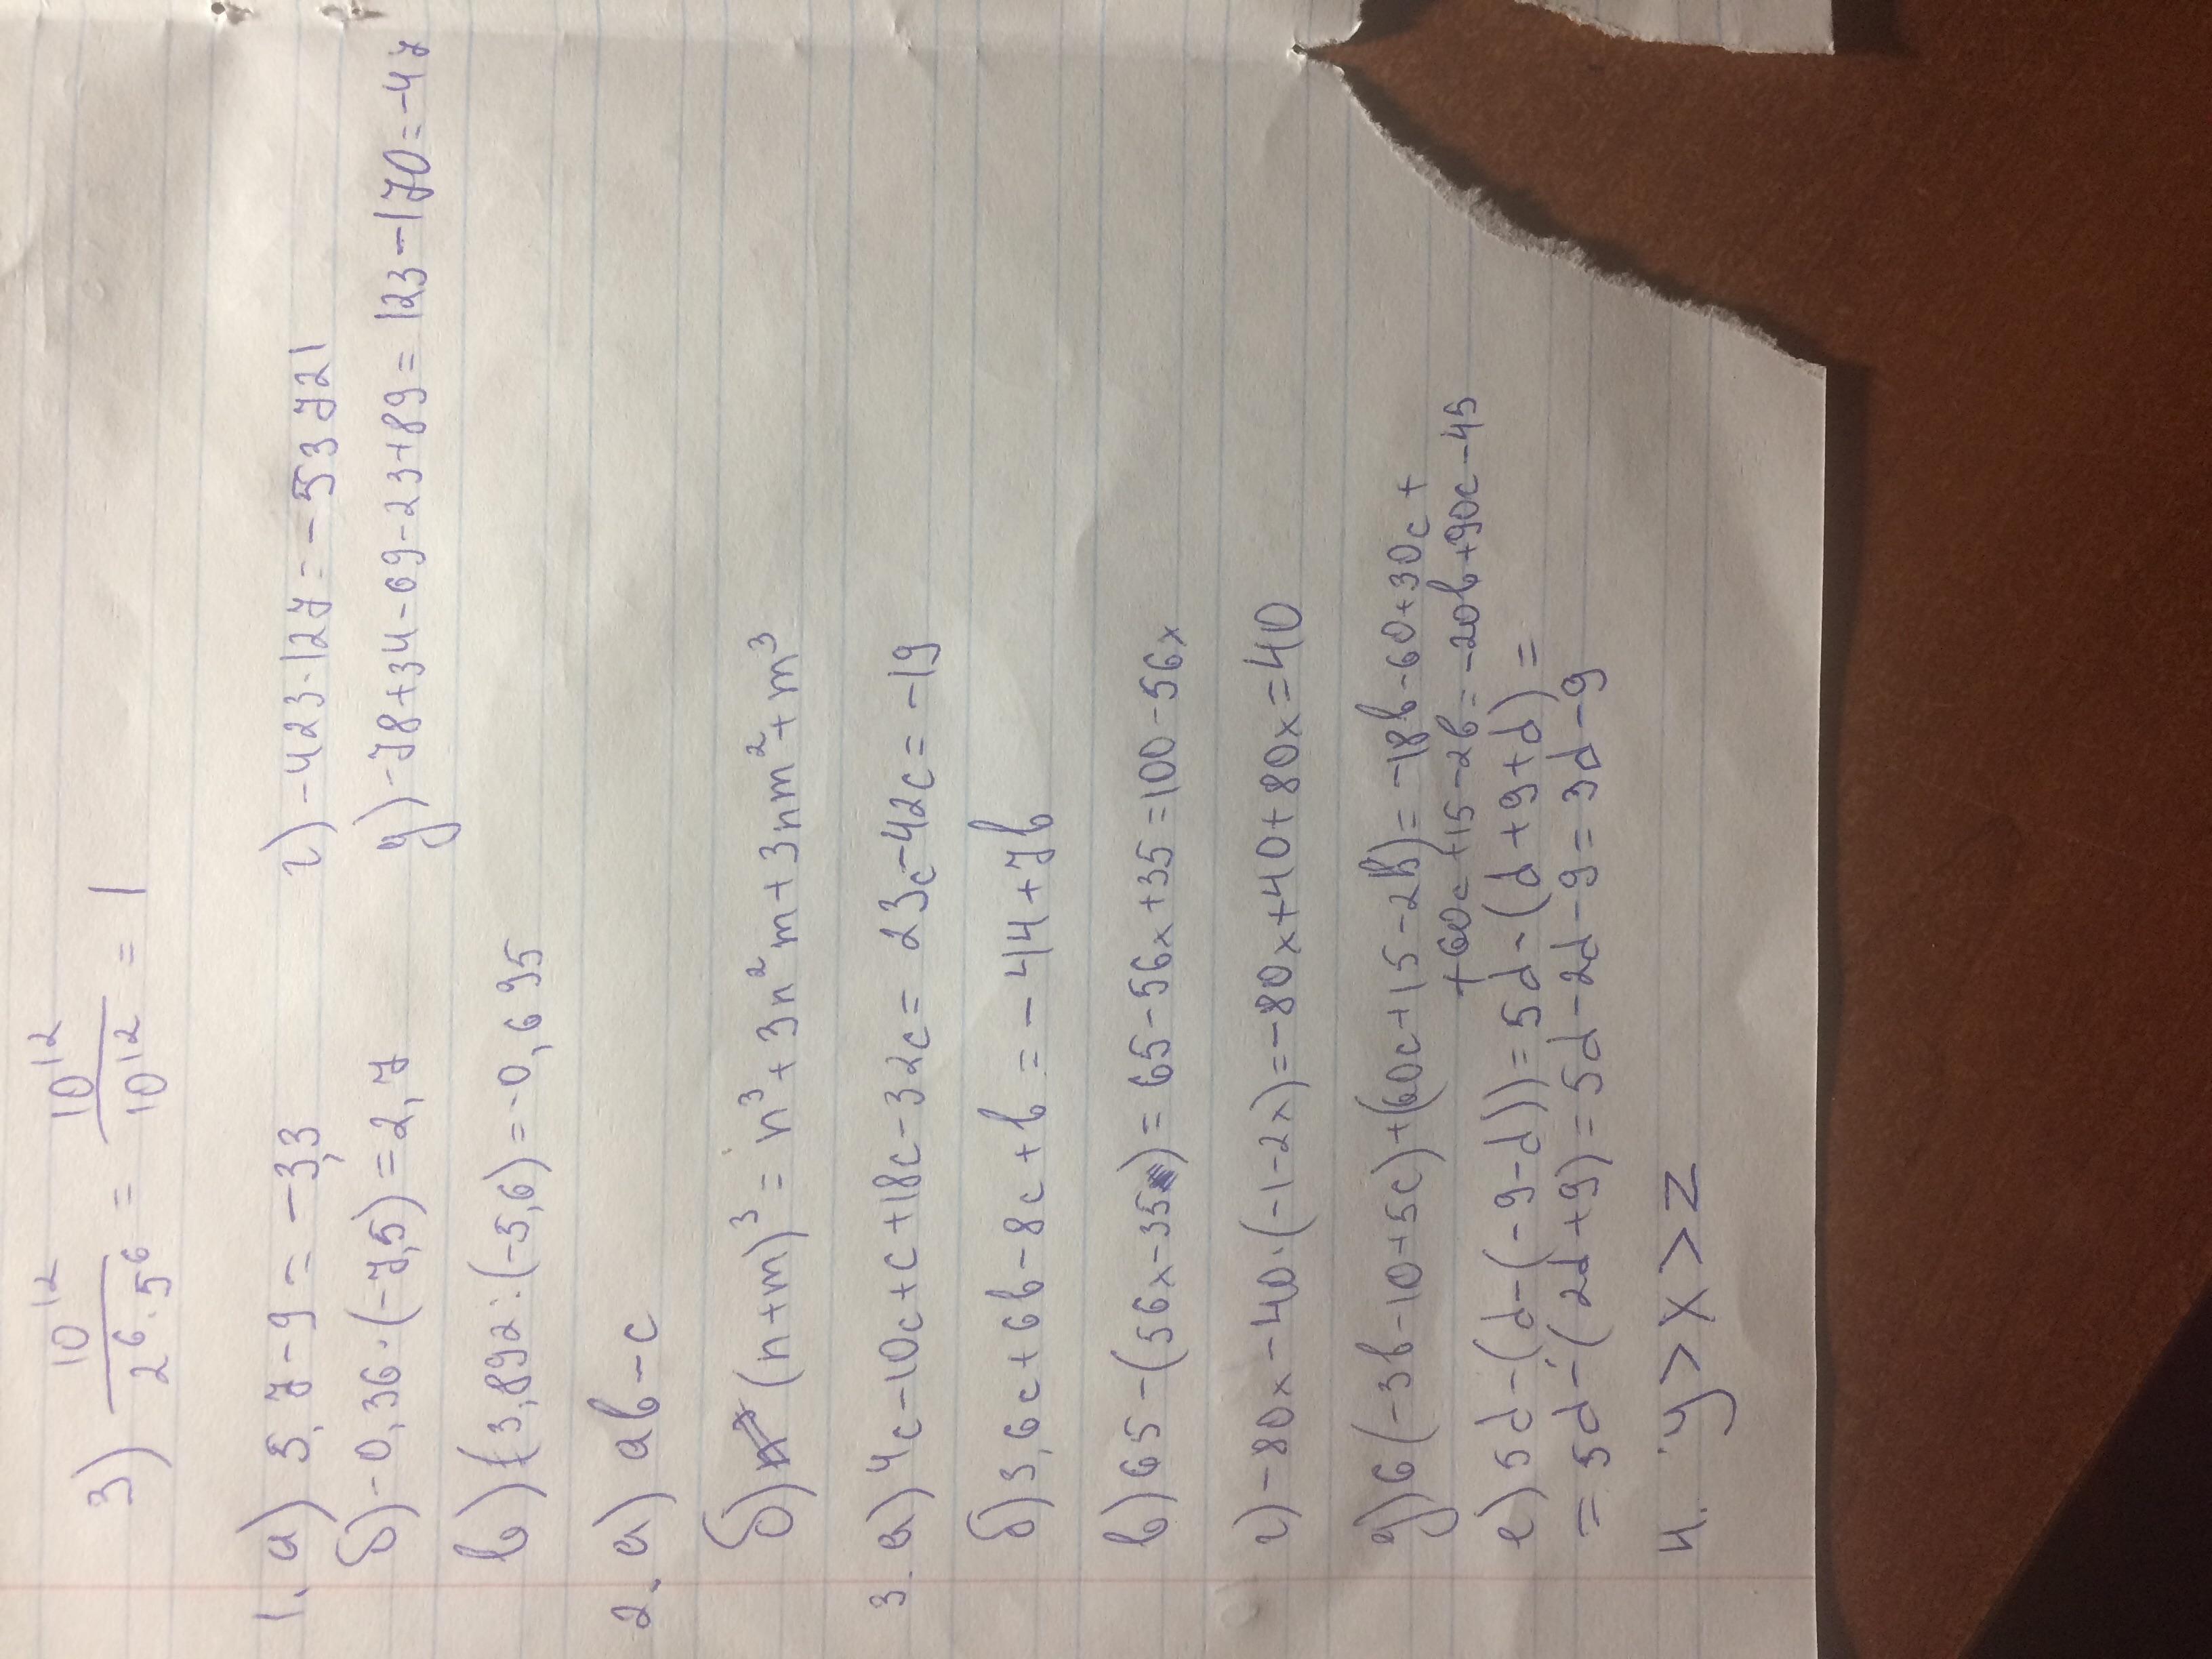 3) 10^12 / (2^6 · 5^6) = 10^12 / 10^12 = 1
1. а) 5,7 - 9 = -3,3
г) -423 · 127 = -53721
б) -0,36 · (-7,5) = 2,7
д) -78 + 34 - 69 - 23 + 89 = 123 - 170 = -47
в) (3,892 : (-5,6) = -0,695
2. а) ab - c
б) (n+m)³ = n³ + 3n²m + 3nm² + m³
3. а) 4c - 10c + c + 18c - 32c = 23c - 42c = -19
б) 3,6c + 6b - 8c + b = -44 + 7b
в) 65 - (56x - 35) = 65 - 56x + 35 = 100 - 56x
г) -80x - 40 · (-1 - 2x) = -80x + 40 + 80x = 40
д) 6(-3b - 10 + 5c) + (60c + 15 - 2b) = -18b - 60 + 30c +
+ 60c + 15 - 2b = -20b + 90c - 45
е) 5d - (d - (-9 - d)) = 5d - (d + 9 + d) =
= 5d - (2d + 9) = 5d - 2d - 9 = 3d - 9
4. y > x > z